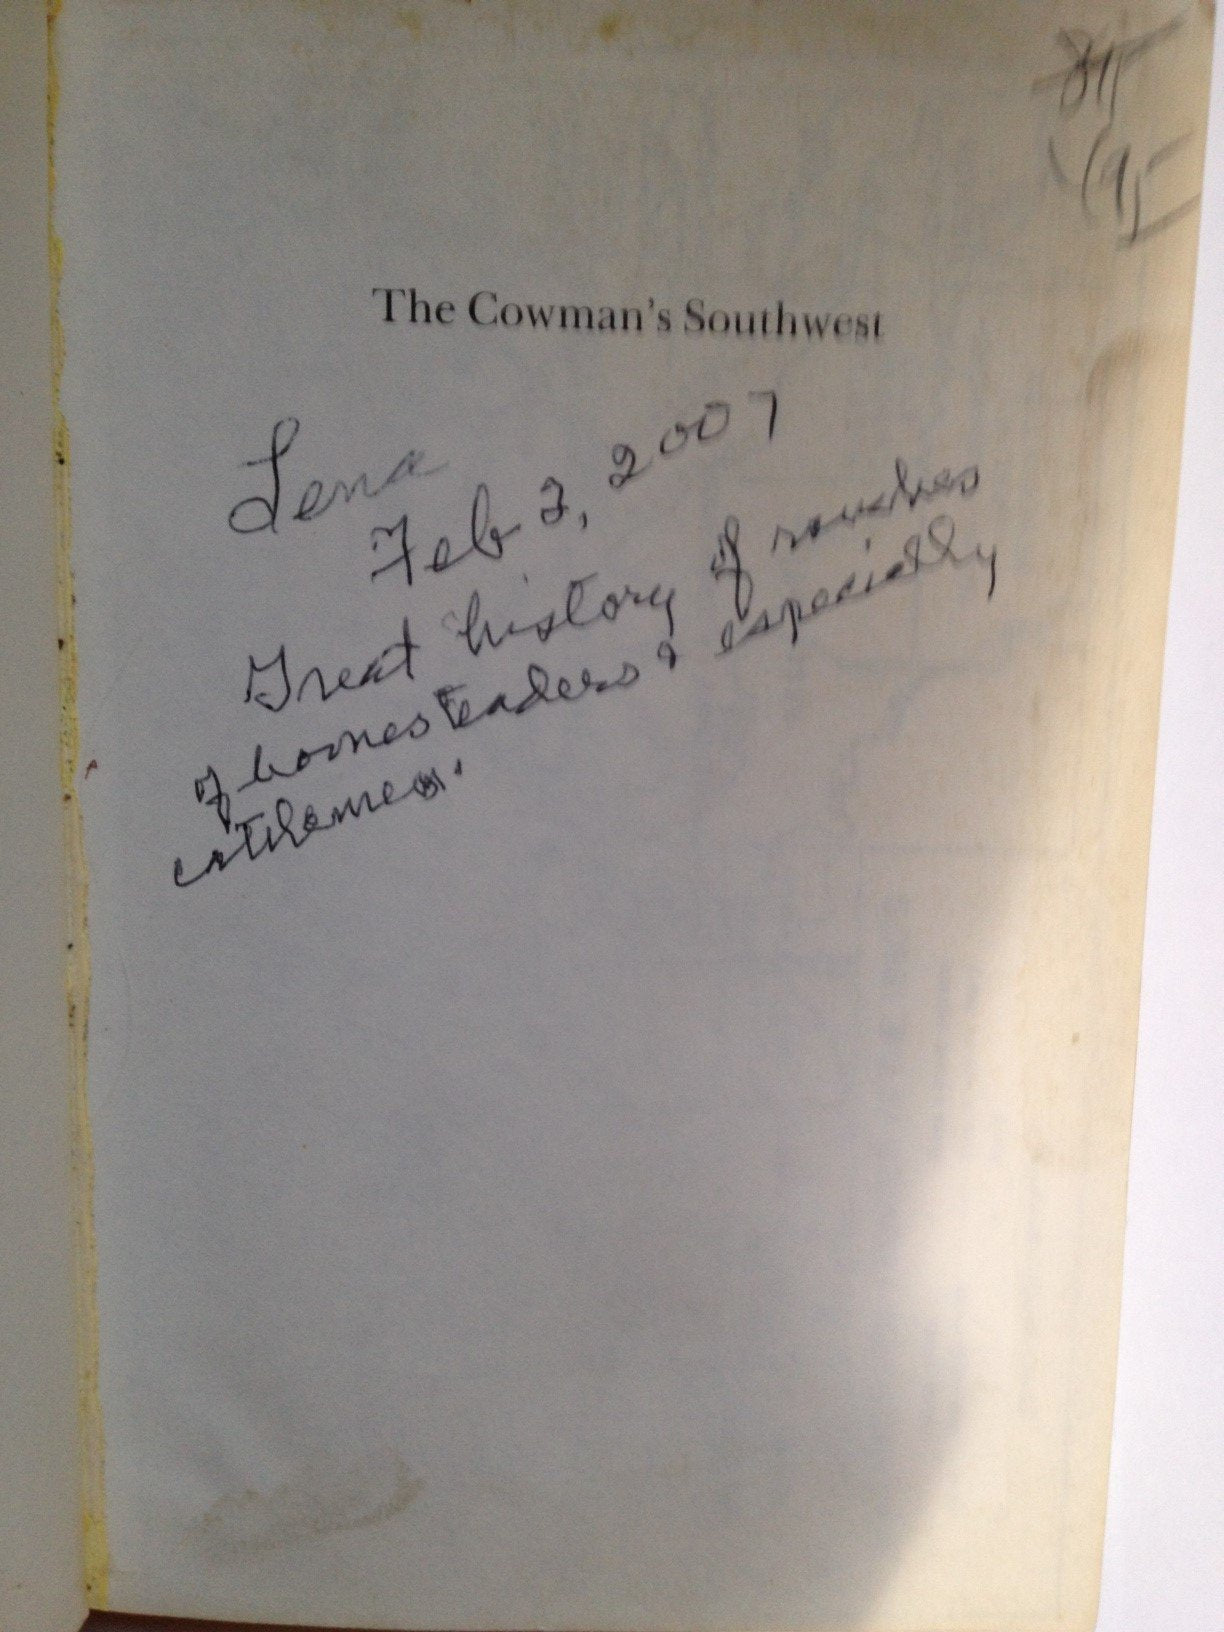 The Cowman's Southwest
Lena
Feb 3, 2007
Great history of ranches
of homesteaders & especially